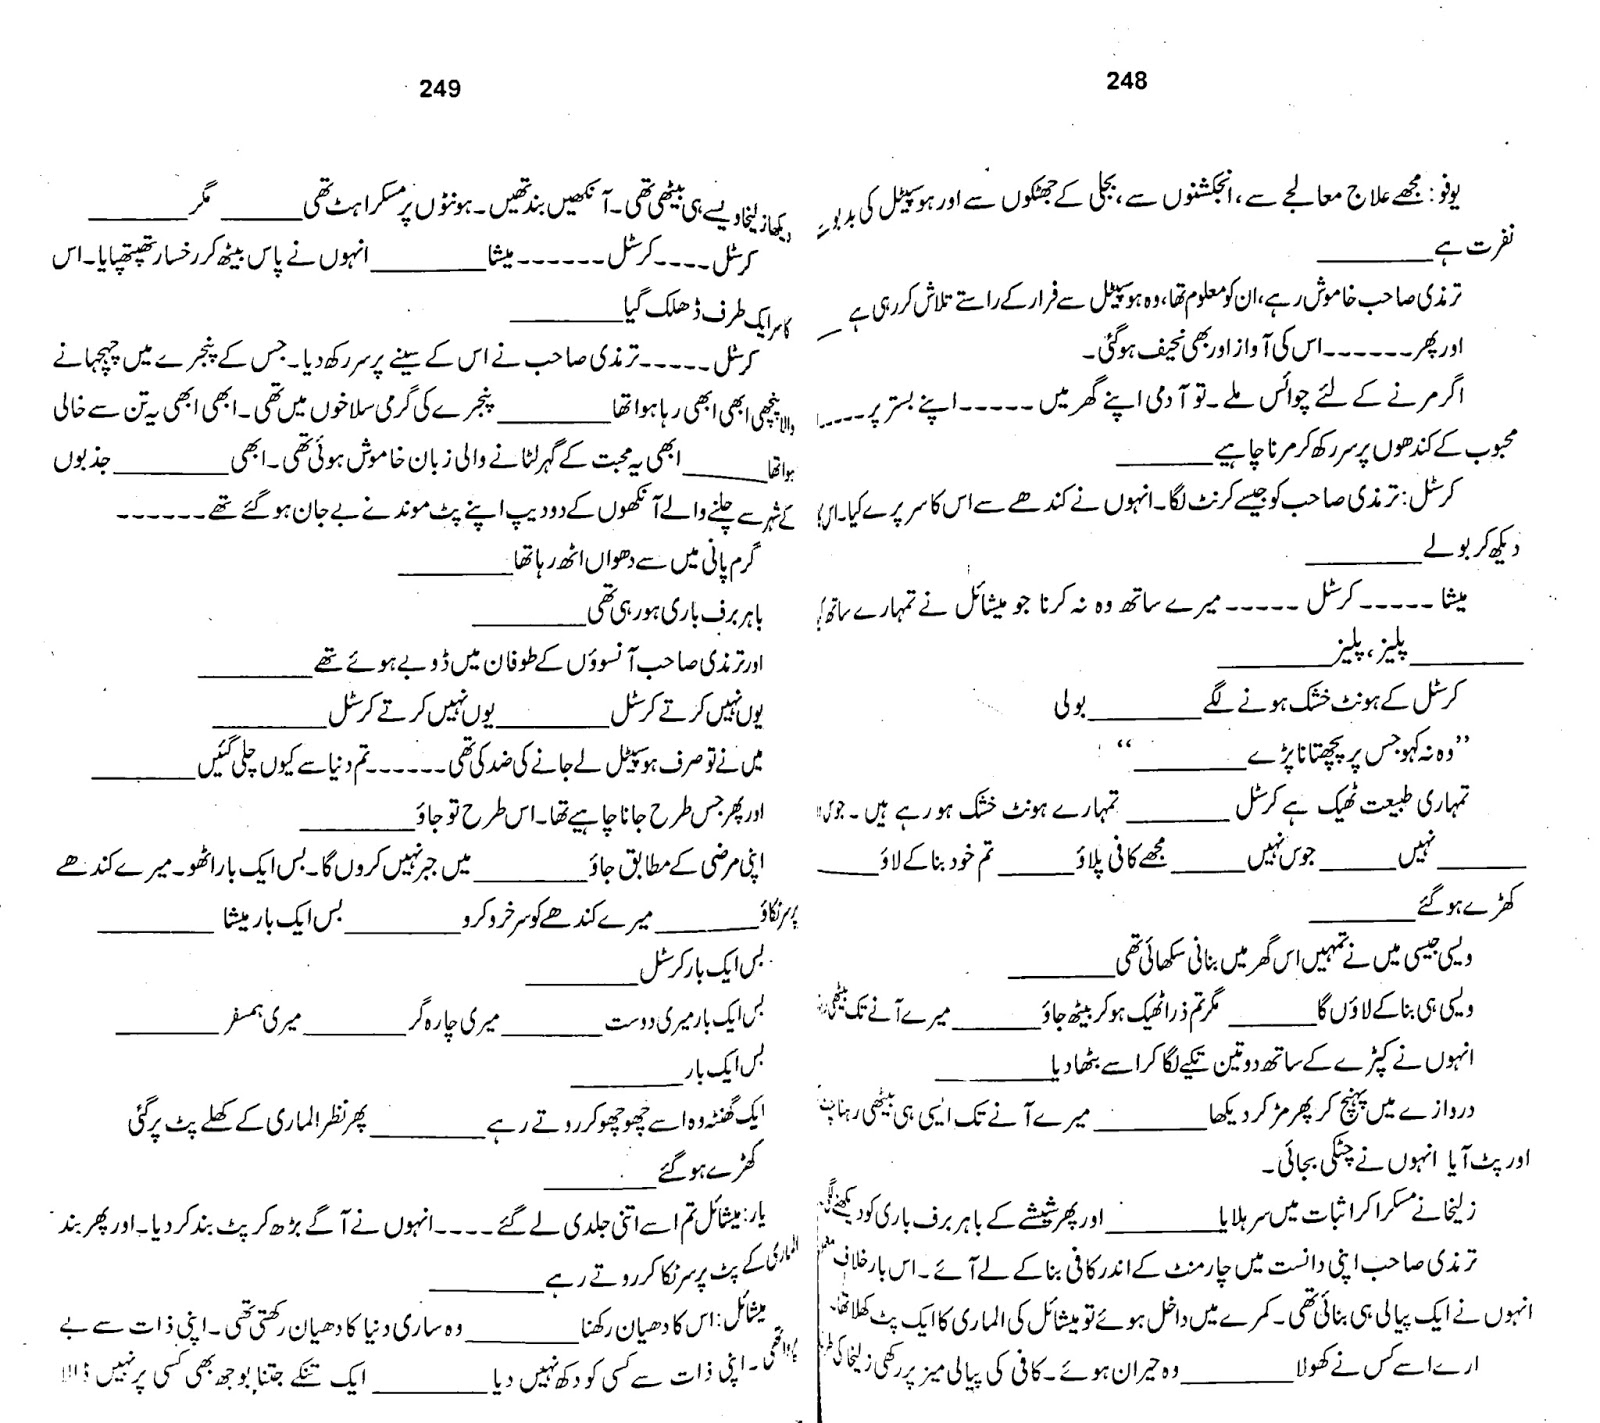 248
یوفو: مجھے علاج معالجے سے، انجکشنوں سے، بجلی کے جھٹکوں سے اور ہوسپیٹل کی بدبو سے
نفرت ہے ________
ترمذی صاحب خاموش رہے، ان کو معلوم تھا، وہ ہوسپیٹل سے فرار کے راستے تلاش کر رہی ہے __
اور پھر ------ اس کی آواز اور بھی نحیف ہوگئی۔
اگر مرنے کے لئے چوائس ملے۔ تو آدمی اپنے گھر میں ----- اپنے بستر پر ----
محبوب کے کندھوں پر سر رکھ کر مرنا چاہیے ________
کرسٹل: ترمذی صاحب کو جیسے کرنٹ لگا۔ انہوں نے کندھے سے اس کا سر پرے کیا۔
دیکھ کر بولے ________
میشا ----- کرسٹل ----- میرے ساتھ وہ نہ کرنا جو میشائل نے تمہارے ساتھ
________ پلیز، پلیز ________
کرسٹل کے ہونٹ خشک ہونے لگے ________ بولی
”وہ نہ کہو جس پر پچھتانا پڑے ________“
تمہاری طبیعت ٹھیک ہے کرسٹل ________ تمہارے ہونٹ خشک ہو رہے ہیں۔ جوس
________ نہیں ________ جوس نہیں ________ مجھے کافی پلاؤ ________ تم خود بنا کے لاؤ ________
کھڑے ہوگئے ________
ویسی جیسی میں نے تمہیں اس گھر میں بنانی سکھائی تھی ________
ویسی ہی بنا کے لاؤں گا ________ مگر تم ذرا ٹھیک ہو کر بیٹھ جاؤ ________ میرے آنے تک بیٹھی
انہوں نے کپڑے کے ساتھ دو تین تکیے لگا کر اسے بٹھا دیا ________
دروازے میں پہنچ کر پھر مڑ کر دیکھا ________ میرے آنے تک ایسی ہی بیٹھی رہنا
اور پٹ آیا انہوں نے چٹکی بجائی۔
زلیخا نے مسکرا کر اثبات میں سر ہلایا ________ اور پھر شیشے کے باہر برف باری کو دیکھنے لگی
ترمذی صاحب اپنی دانست میں چار منٹ کے اندر کافی بنا کے لے آئے۔ اس بار خلاف
انہوں نے ایک پیالی ہی بنائی تھی۔ کمرے میں داخل ہوئے تو میشائل کی الماری کا ایک پٹ کھلا تھا۔
ارے اسے کس نے کھولا ________ وہ حیران ہوئے۔ کافی کی پیالی میز پر رکھی زلیخا کی
249
دیکھا زلیخا ویسے ہی بیٹھی تھی۔ آنکھیں بند تھیں۔ ہونٹوں پر مسکراہٹ تھی ________ مگر ________
کرسٹل ---- کرسٹل ------ میشا ________ انہوں نے پاس بیٹھ کر رخسار تھپتھپایا۔ اس
کا سر ایک طرف ڈھلک گیا ________
کرسٹل ----- ترمذی صاحب نے اس کے سینے پر سر رکھ دیا۔ جس کے پنجرے میں چہچہانے
والا پنچھی ابھی ابھی رہا ہوا تھا ________ پنجرے کی گرمی سلاخوں میں تھی۔ ابھی ابھی یہ تن سے خالی
ہوا تھا ________ ابھی یہ محبت کے گہر لٹانے والی زبان خاموش ہوئی تھی۔ ابھی ________ جذبوں
کے شہر سے چلنے والے آنکھوں کے دو دیپ اپنے پٹ موندنے بے جان ہوگئے تھے ------
گرم پانی میں سے دھواں اٹھ رہا تھا ________
باہر برف باری ہو رہی تھی ________
اور ترمذی صاحب آنسوؤں کے طوفان میں ڈوبے ہوئے تھے ________
یوں نہیں کرتے کرسٹل ________ یوں نہیں کرتے کرسٹل ________
میں نے تو صرف ہوسپیٹل لے جانے کی ضد کی تھی ------ تم دنیا سے کیوں چلی گئیں ________
اور پھر جس طرح جانا چاہیے تھا۔ اس طرح تو جاؤ ________
اپنی مرضی کے مطابق جاؤ ________ میں جبر نہیں کروں گا۔ بس ایک بار اٹھو۔ میرے کندھے
پر سر ٹکاؤ ________ میرے کندھے کو سرخرو کرو ________ بس ایک بار میشا ________
بس ایک بار کرسٹل ________
بس ایک بار میری دوست ________ میری چارہ گر ________ میری ہمسفر ________
بس ایک بار ________
ایک گھنٹہ وہ اسے چھو چھو کر روتے رہے ________ پھر نظر الماری کے کھلے پٹ پر گئی
کھڑے ہوگئے ________
یار: میشائل تم اسے اتنی جلدی لے گئے ---- انہوں نے آگے بڑھ کر پٹ بند کر دیا۔ اور پھر بند
الماری کے پٹ پر سر ٹکا کر روتے رہے ________
میشائل: اس کا دھیان رکھنا ________ وہ ساری دنیا کا دھیان رکھتی تھی۔ اپنی ذات سے بے
پرواہ تھی۔ اپنی ذات سے کسی کو دکھ نہیں دیا ________ ایک تنکے جتنا بوجھ بھی کسی پر نہیں ڈالا